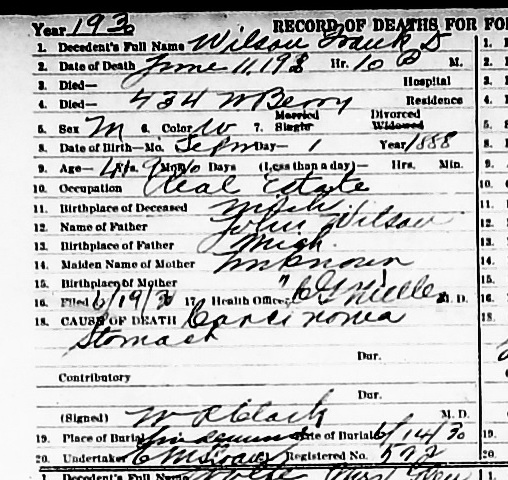 Year 1930 RECORD OF DEATHS FOR FO
1. Decedent's Full Name Wilson Frank D
2. Date of Death June 11, 193 Hr. 10 P M.
3. Died— Hospital
4. Died— 434 W Berry Residence
5. Sex M 6. Color W 7. Married Single Divorced Widowed
8. Date of Birth—Mo. Day— 1 Year 1888
9. Age— 41 Yrs. 9 Mo. 10 Days (Less than a day)— Hrs. Min.
10. Occupation Real Estate
11. Birthplace of Deceased Mich.
12. Name of Father John Wilson
13. Birthplace of Father Mich.
14. Maiden Name of Mother Unknown
15. Birthplace of Mother "
16. Filed 6/19/30 17. Health Officer Miller M. D.
18. CAUSE OF DEATH Carcinoma
Stomach
Dur.
Contributory
Dur.
(Signed) W R Clark M. D.
19. Place of Burial Lindenwood Date of Burial 6/14/30
20. Undertaker Registered No.
1. Decedent's Full Name Wolfe